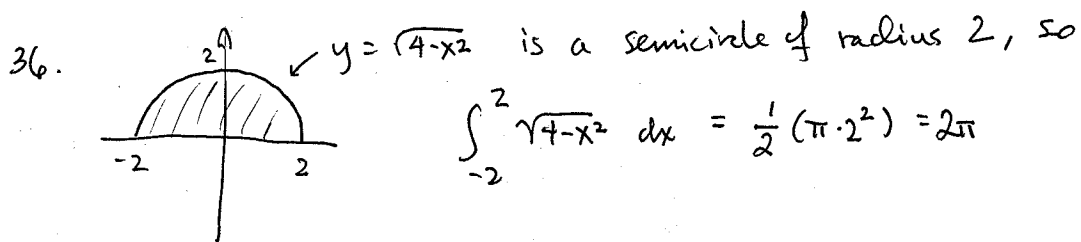 36.
2
y = √4-x2 is a semicircle of radius 2, so
∫₋₂² √4-x² dx = 1/2 (π·2²) = 2π
-2 2